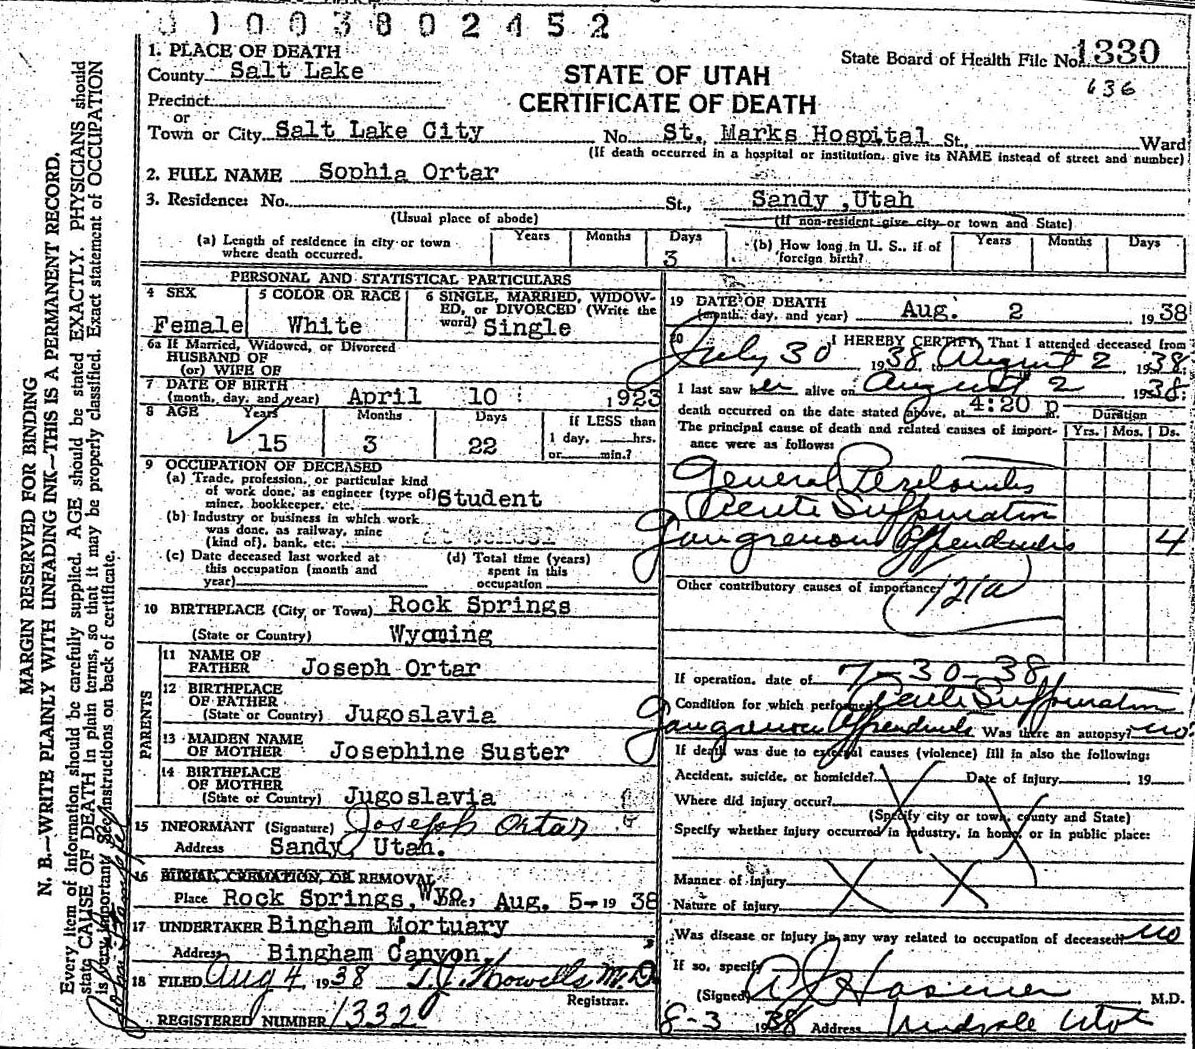 01003802452
1. PLACE OF DEATH
County Salt Lake
State Board of Health File No. 1330
636
STATE OF UTAH
CERTIFICATE OF DEATH
Precinct
or
Town or City Salt Lake City No. St. Marks Hospital St. Ward
(If death occurred in a hospital or institution, give its NAME instead of street and number)
2. FULL NAME Sophia Ortar
3. Residence: No. St., Sandy, Utah
(Usual place of abode) (If non-resident give city or town and State)
(a) Length of residence in city or town where death occurred. Years Months Days 3
(b) How long in U. S., if of foreign birth? Years Months Days
PERSONAL AND STATISTICAL PARTICULARS
4 SEX Female
5 COLOR OR RACE White
6 SINGLE, MARRIED, WIDOW-
ED, or DIVORCED (Write the
word) Single
6a If Married, Widowed, or Divorced
HUSBAND OF
(or) WIFE OF
7 DATE OF BIRTH
(month, day, and year) April 10 1923
8 AGE Years 15 Months 3 Days 22
if LESS than
1 day, hrs.
or min.?
9 OCCUPATION OF DECEASED
(a) Trade, profession, or particular kind
of work done, as engineer (type of)
miner, bookkeeper, etc. Student
(b) Industry or business in which work
was done, as railway, mine
(kind of), bank, etc. At School
(c) Date deceased last worked at
this occupation (month and
year)
(d) Total time (years)
spent in this
occupation
10 BIRTHPLACE (City or Town) Rock Springs
(State or Country) Wyoming
PARENTS
11 NAME OF
FATHER Joseph Ortar
12 BIRTHPLACE
OF FATHER
(State or Country) Jugoslavia
13 MAIDEN NAME
OF MOTHER Josephine Suster
14 BIRTHPLACE
OF MOTHER
(State or Country) Jugoslavia
15 INFORMANT (Signature) Joseph Ortar
Address Sandy, Utah.
16 BURIAL, CREMATION, OR REMOVAL
Place Rock Springs, Wyo., Aug. 5- 1938
17 UNDERTAKER Bingham Mortuary
Address Bingham Canyon,
18 FILED Aug 4 1938 T. J. Howells M.D.
Registrar.
REGISTERED NUMBER 1332
19 DATE OF DEATH
(month, day, and year) Aug. 2 1938
20 I HEREBY CERTIFY, That I attended deceased from
July 30 1938 to August 2 1938.
I last saw her alive on August 2 1938.
death occurred on the date stated above, at 4:20 p m.
The principal cause of death and related causes of import-
ance were as follows:
Duration
Yrs. Mos. Ds.
General Peritonitis
Acute Suppurative
Gangrenous Appendicitis 4
Other contributory causes of importance:
121a
If operation, date of 7-30-38
Condition for which performed Acute Suppurative
Gangrenous Appendicitis Was there an autopsy? no.
If death was due to external causes (violence) fill in also the following:
Accident, suicide, or homicide? Date of injury 19
Where did injury occur?
(Specify city or town, county and State)
Specify whether injury occurred in industry, in home, or in public place:
Manner of injury
Nature of injury
Was disease or injury in any way related to occupation of deceased? no
If so, specify
(Signed) M.D.
8-3 1938 Address Midvale Utah
MARGIN RESERVED FOR BINDING
N. B.—WRITE PLAINLY WITH UNFADING INK—THIS IS A PERMANENT RECORD.
Every item of information should be carefully supplied. AGE should be stated EXACTLY. PHYSICIANS should
state CAUSE OF DEATH in plain terms, so that it may be properly classified. Exact statement of OCCUPATION
is very important. See instructions on back of certificate.